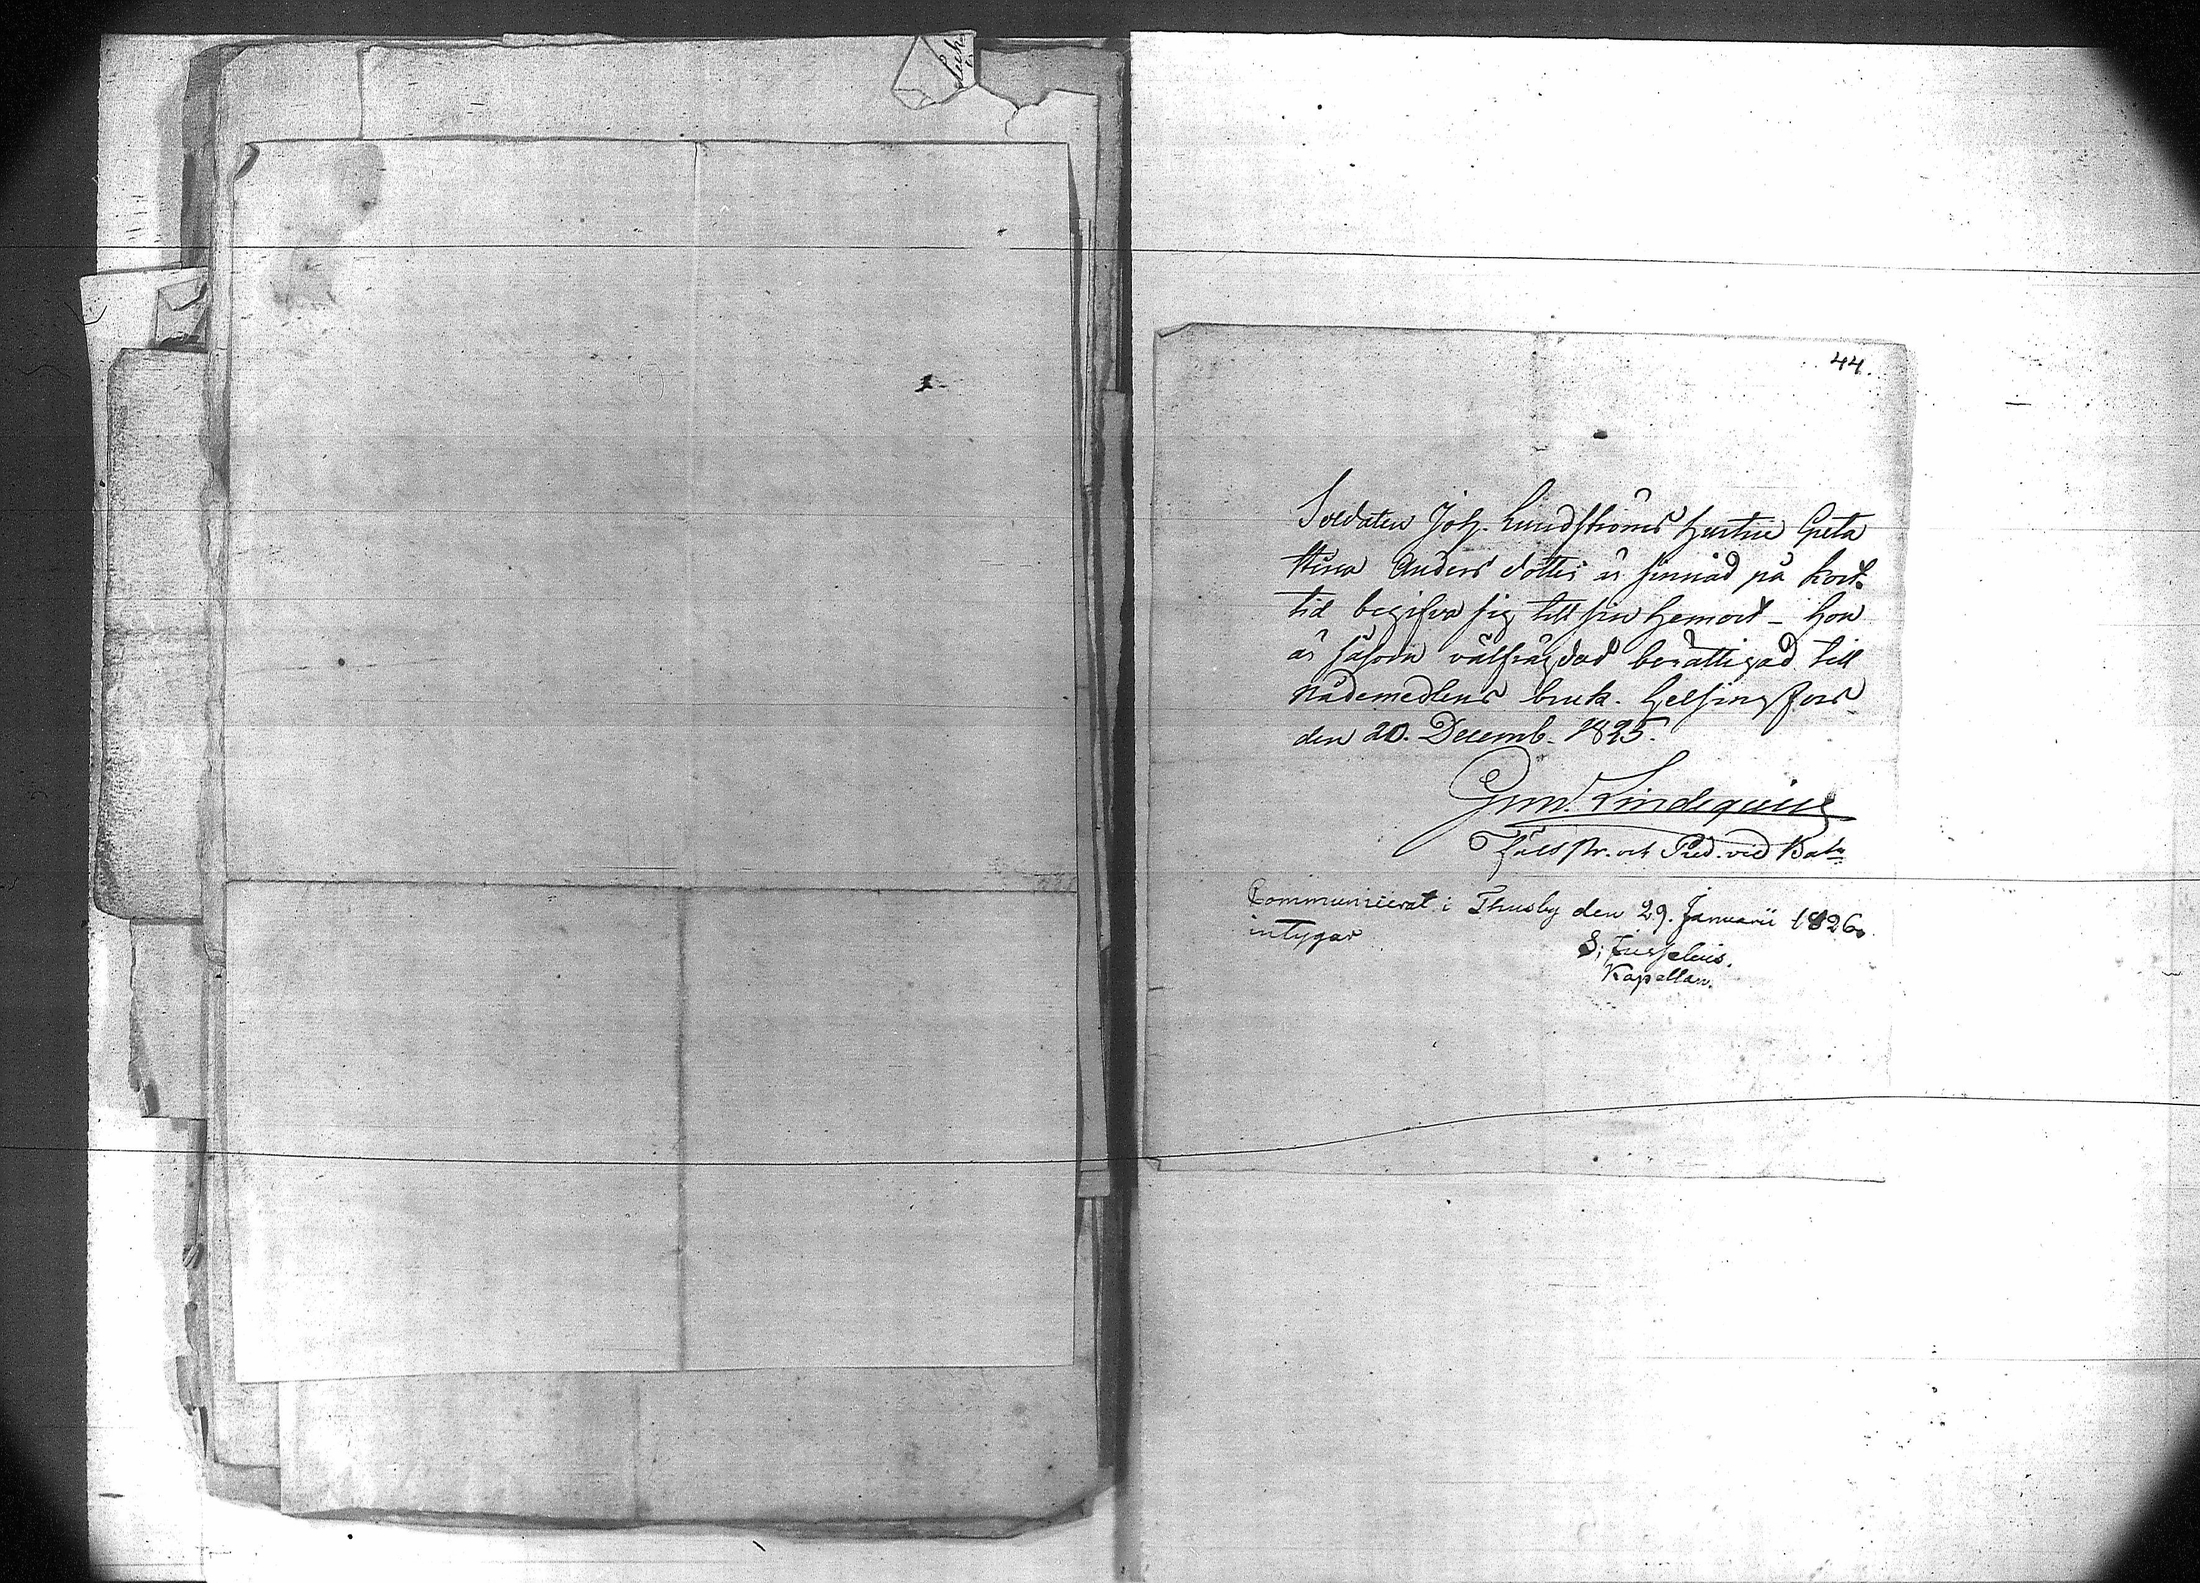 44.
Soldaten Joh. Lundströms hustru Greta
Stina Anders dotter är sinnad på kort
tid begifva sig till sin hemort - hon
är såsom välfrägdad berättigad till
Nådemedlens bruk. Helsingfors
den 20. Decemb. 1825.
Lindequist
och Pred. vid Batn
Communicerat i Thusby den 29. Januarii 1826.
intygar
Kapellan.